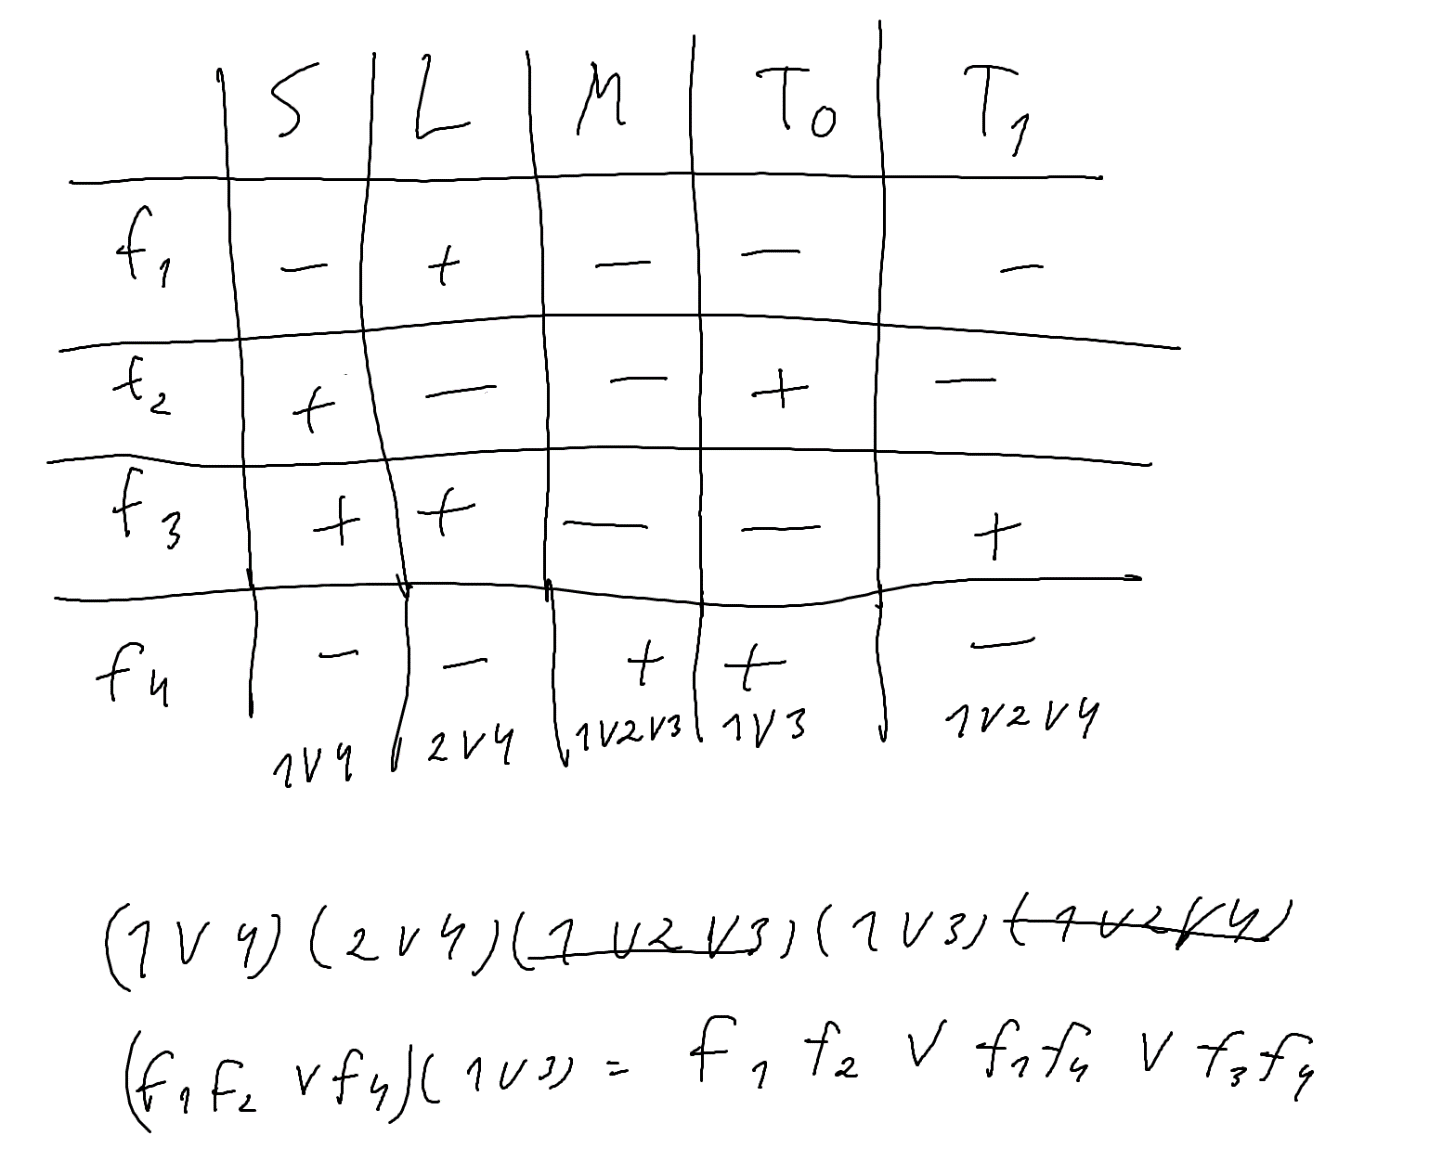 S L M T₀ T₁
f₁ − + − − −
f₂ + − − + −
f₃ + + − − +
f₄ − − + + −
1∨4 2∨4 1∨2∨3 1∨3 1∨2∨4
(1∨4)(2∨4)(1∨2∨3)(1∨3)(1∨2∨4)
(f₁f₂ ∨ f₄)(1∨3) = f₁f₂ ∨ f₁f₄ ∨ f₃f₄